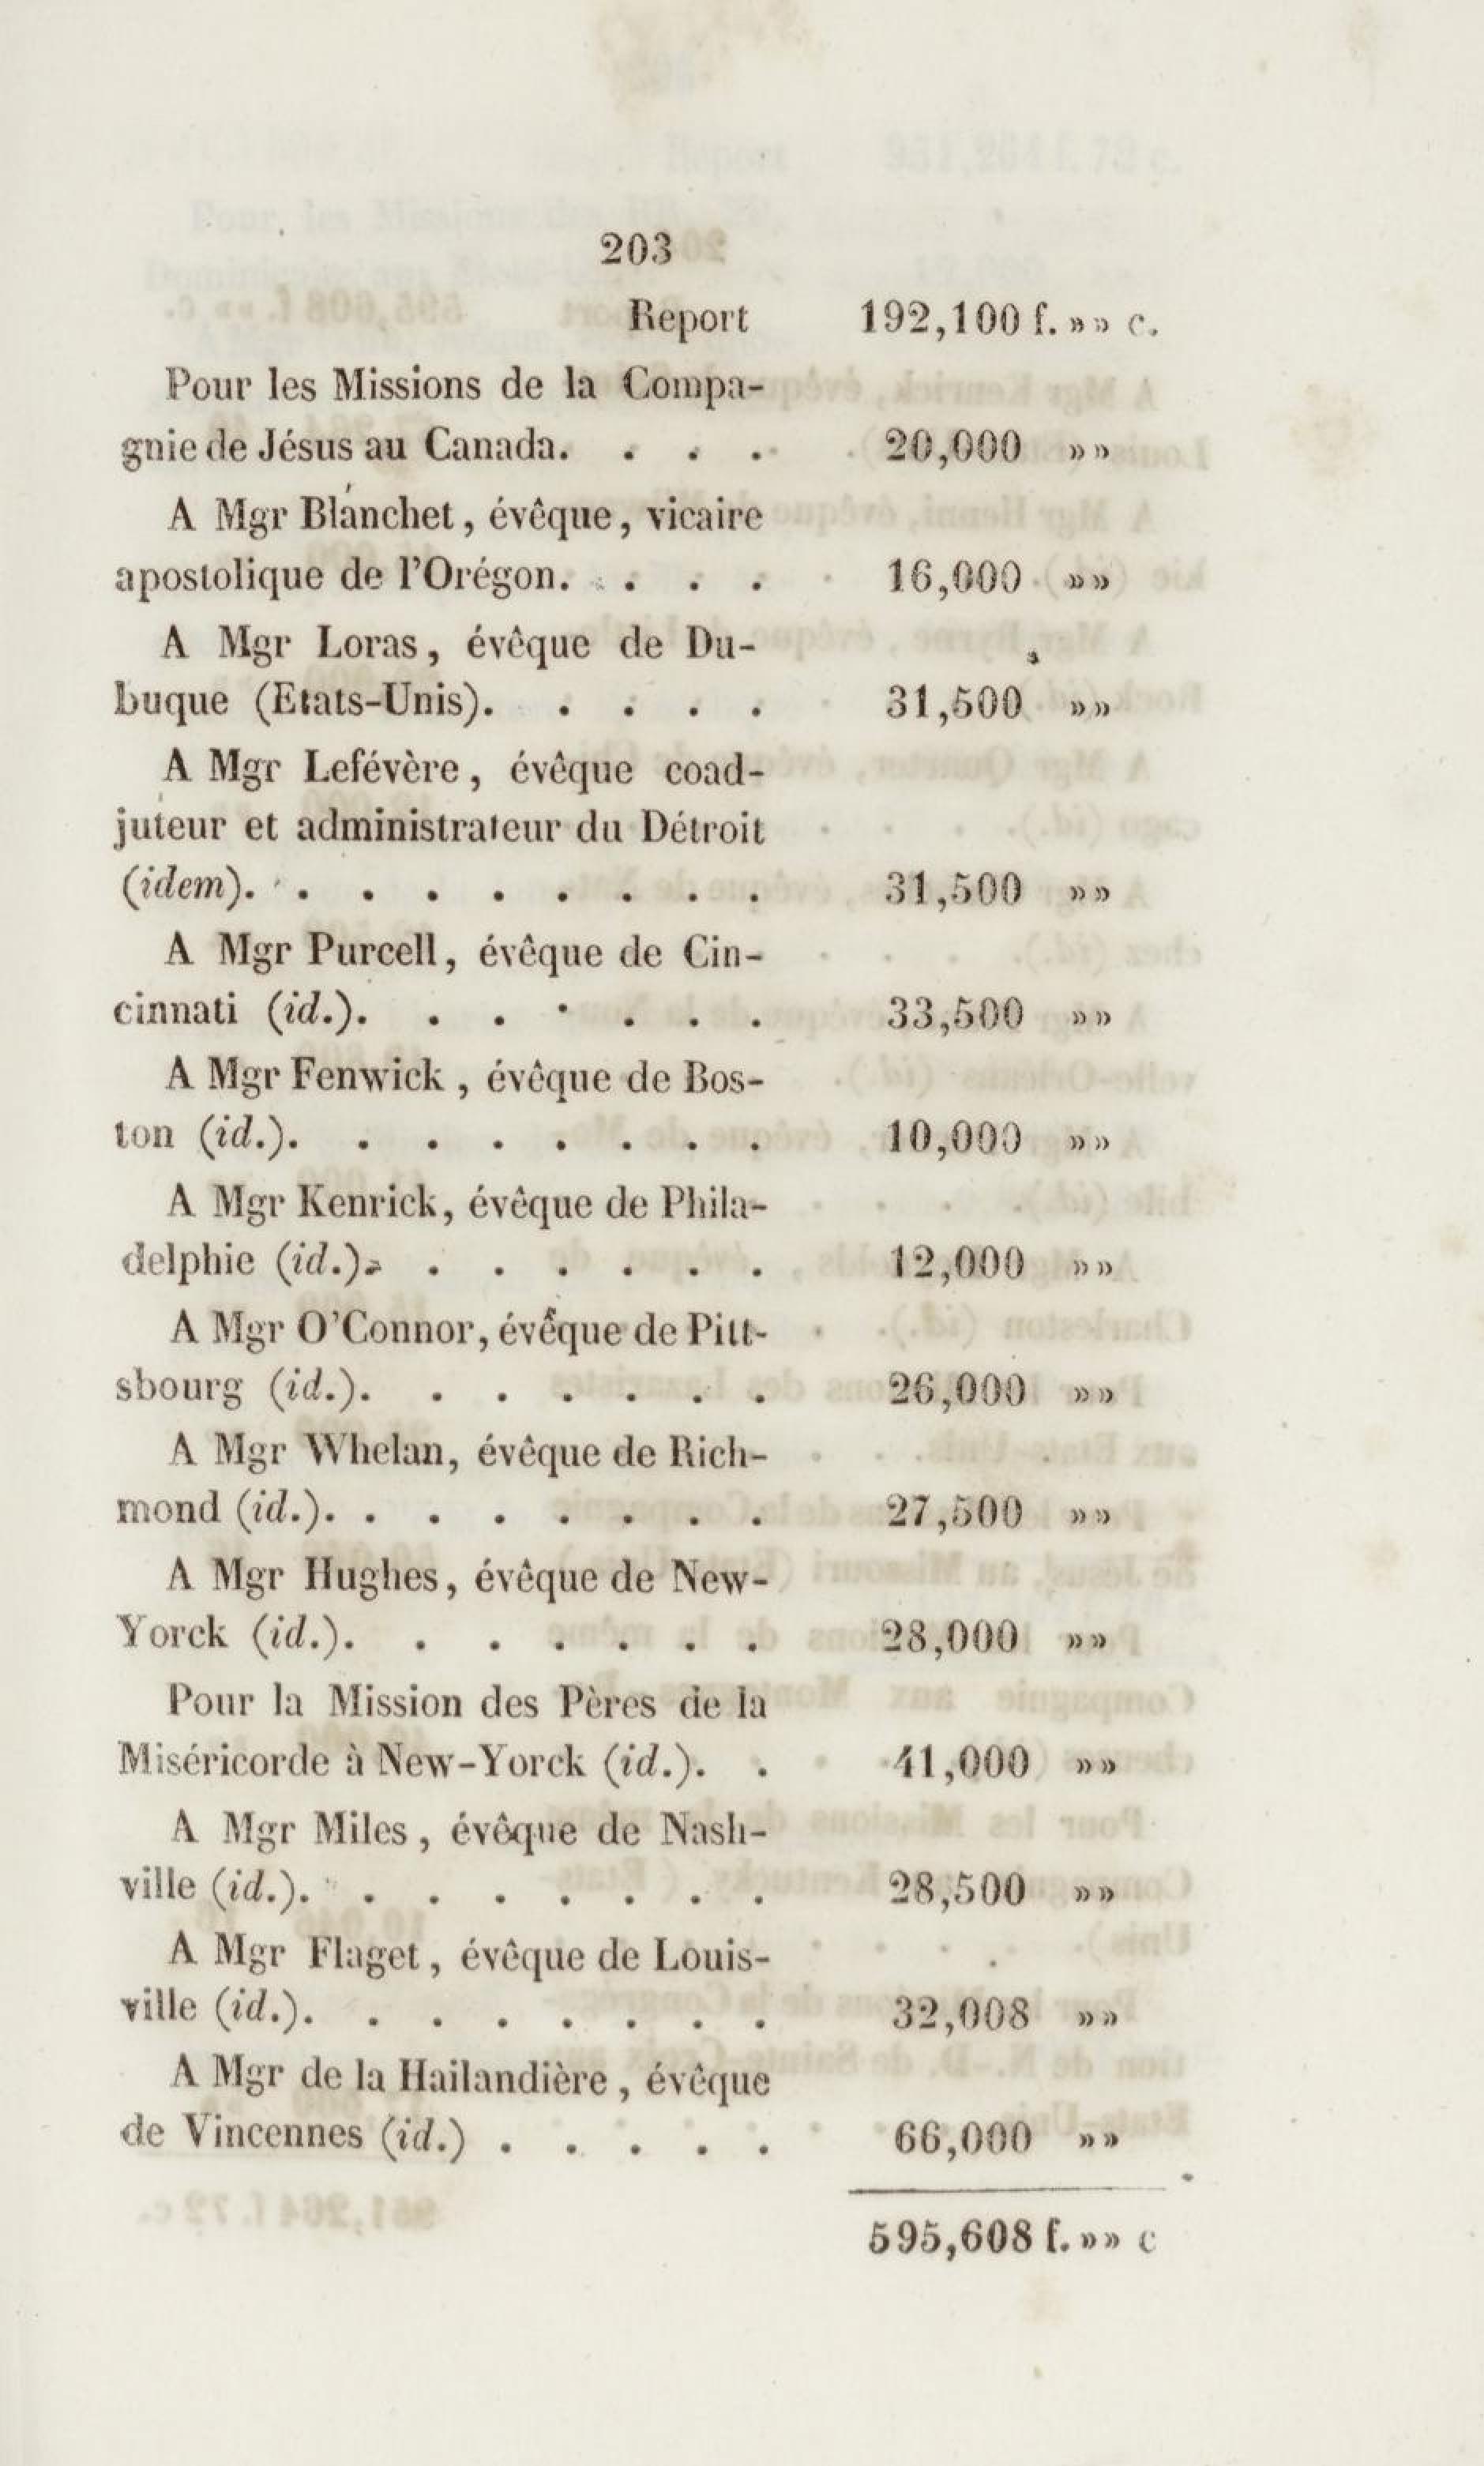 203
Report 192,100 f. »» c.
Pour les Missions de la Compa-
gnie de Jésus au Canada. . . . 20,000 »»
A Mgr Blanchet, évêque, vicaire
apostolique de l'Orégon. . . . 16,000 »»
A Mgr Loras, évêque de Du-
buque (Etats-Unis). . . . . 31,500 »»
A Mgr Lefévère, évêque coad-
juteur et administrateur du Détroit
(idem). . . . . . . . . 31,500 »»
A Mgr Purcell, évêque de Cin-
cinnati (id.). . . . . . . 33,500 »»
A Mgr Fenwick, évêque de Bos-
ton (id.). . . . . . . . 10,000 »»
A Mgr Kenrick, évêque de Phila-
delphie (id.). . . . . . . 12,000 »»
A Mgr O'Connor, évêque de Pitt-
sbourg (id.). . . . . . . 26,000 »»
A Mgr Whelan, évêque de Rich-
mond (id.). . . . . . . . 27,500 »»
A Mgr Hughes, évêque de New-
Yorck (id.). . . . . . . 28,000 »»
Pour la Mission des Pères de la
Miséricorde à New-Yorck (id.). . 41,000 »»
A Mgr Miles, évêque de Nash-
ville (id.). . . . . . . . 28,500 »»
A Mgr Flaget, évêque de Louis-
ville (id.). . . . . . . . 32,008 »»
A Mgr de la Hailandière, évêque
de Vincennes (id.) . . . . . 66,000 »»
595,608 f. »» c